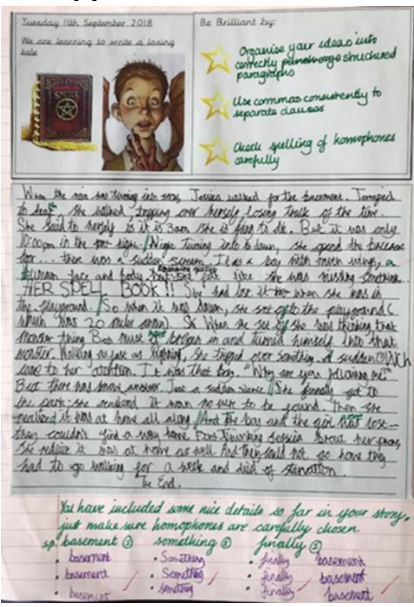 Tuesday 11th September 2018
We are learning to write a losing
tale
SPELLS
Be Brilliant by:
Organise your ideas into
correctly structured
paragraphs
Use commas consistently to
separate clauses
Check spelling of homophones
carefully
When the rain was turning into snow, Jessica walked for the bacement. Terrified
to , she walked tripping over herself losing track of the time.
She said to herself is it is 3am she is to die. But it was only
10:00pm in the Night turning into down, she the bacement
for... there was a sudden scream. It was a boy with raven wings, a
human face and body but like she was missing something...
HER SPELL BOOK!! She had lost it when she was in
the playground. So when it was down, she set of to the playground (
which was 20 miles away). When she set of she was thinking that
monster thing Bob must broken in and turned himself into that
monster. Walking as just as lighting, she tripped over something. A sudden OUCH
came to her atention. It was that boy. "Why are you following me"
But there was know answer. Just a sudden silence. She finnaly got to
the park she it was no were to be found. Then she
realized it was at home all along. And the boy and the girl was lose
they couldn't find a way home. session about her
She realize it was at home as well. And they could not go home they
had to go walking for a week and died of starvation.
The End.
You have included some nice details so far in your story,
just make sure homophones are carefully chosen.
sp. basement ③ something ③ finally ③
basement • Something • finally basement
basement • Something • finally basement
basement • something • finally basement